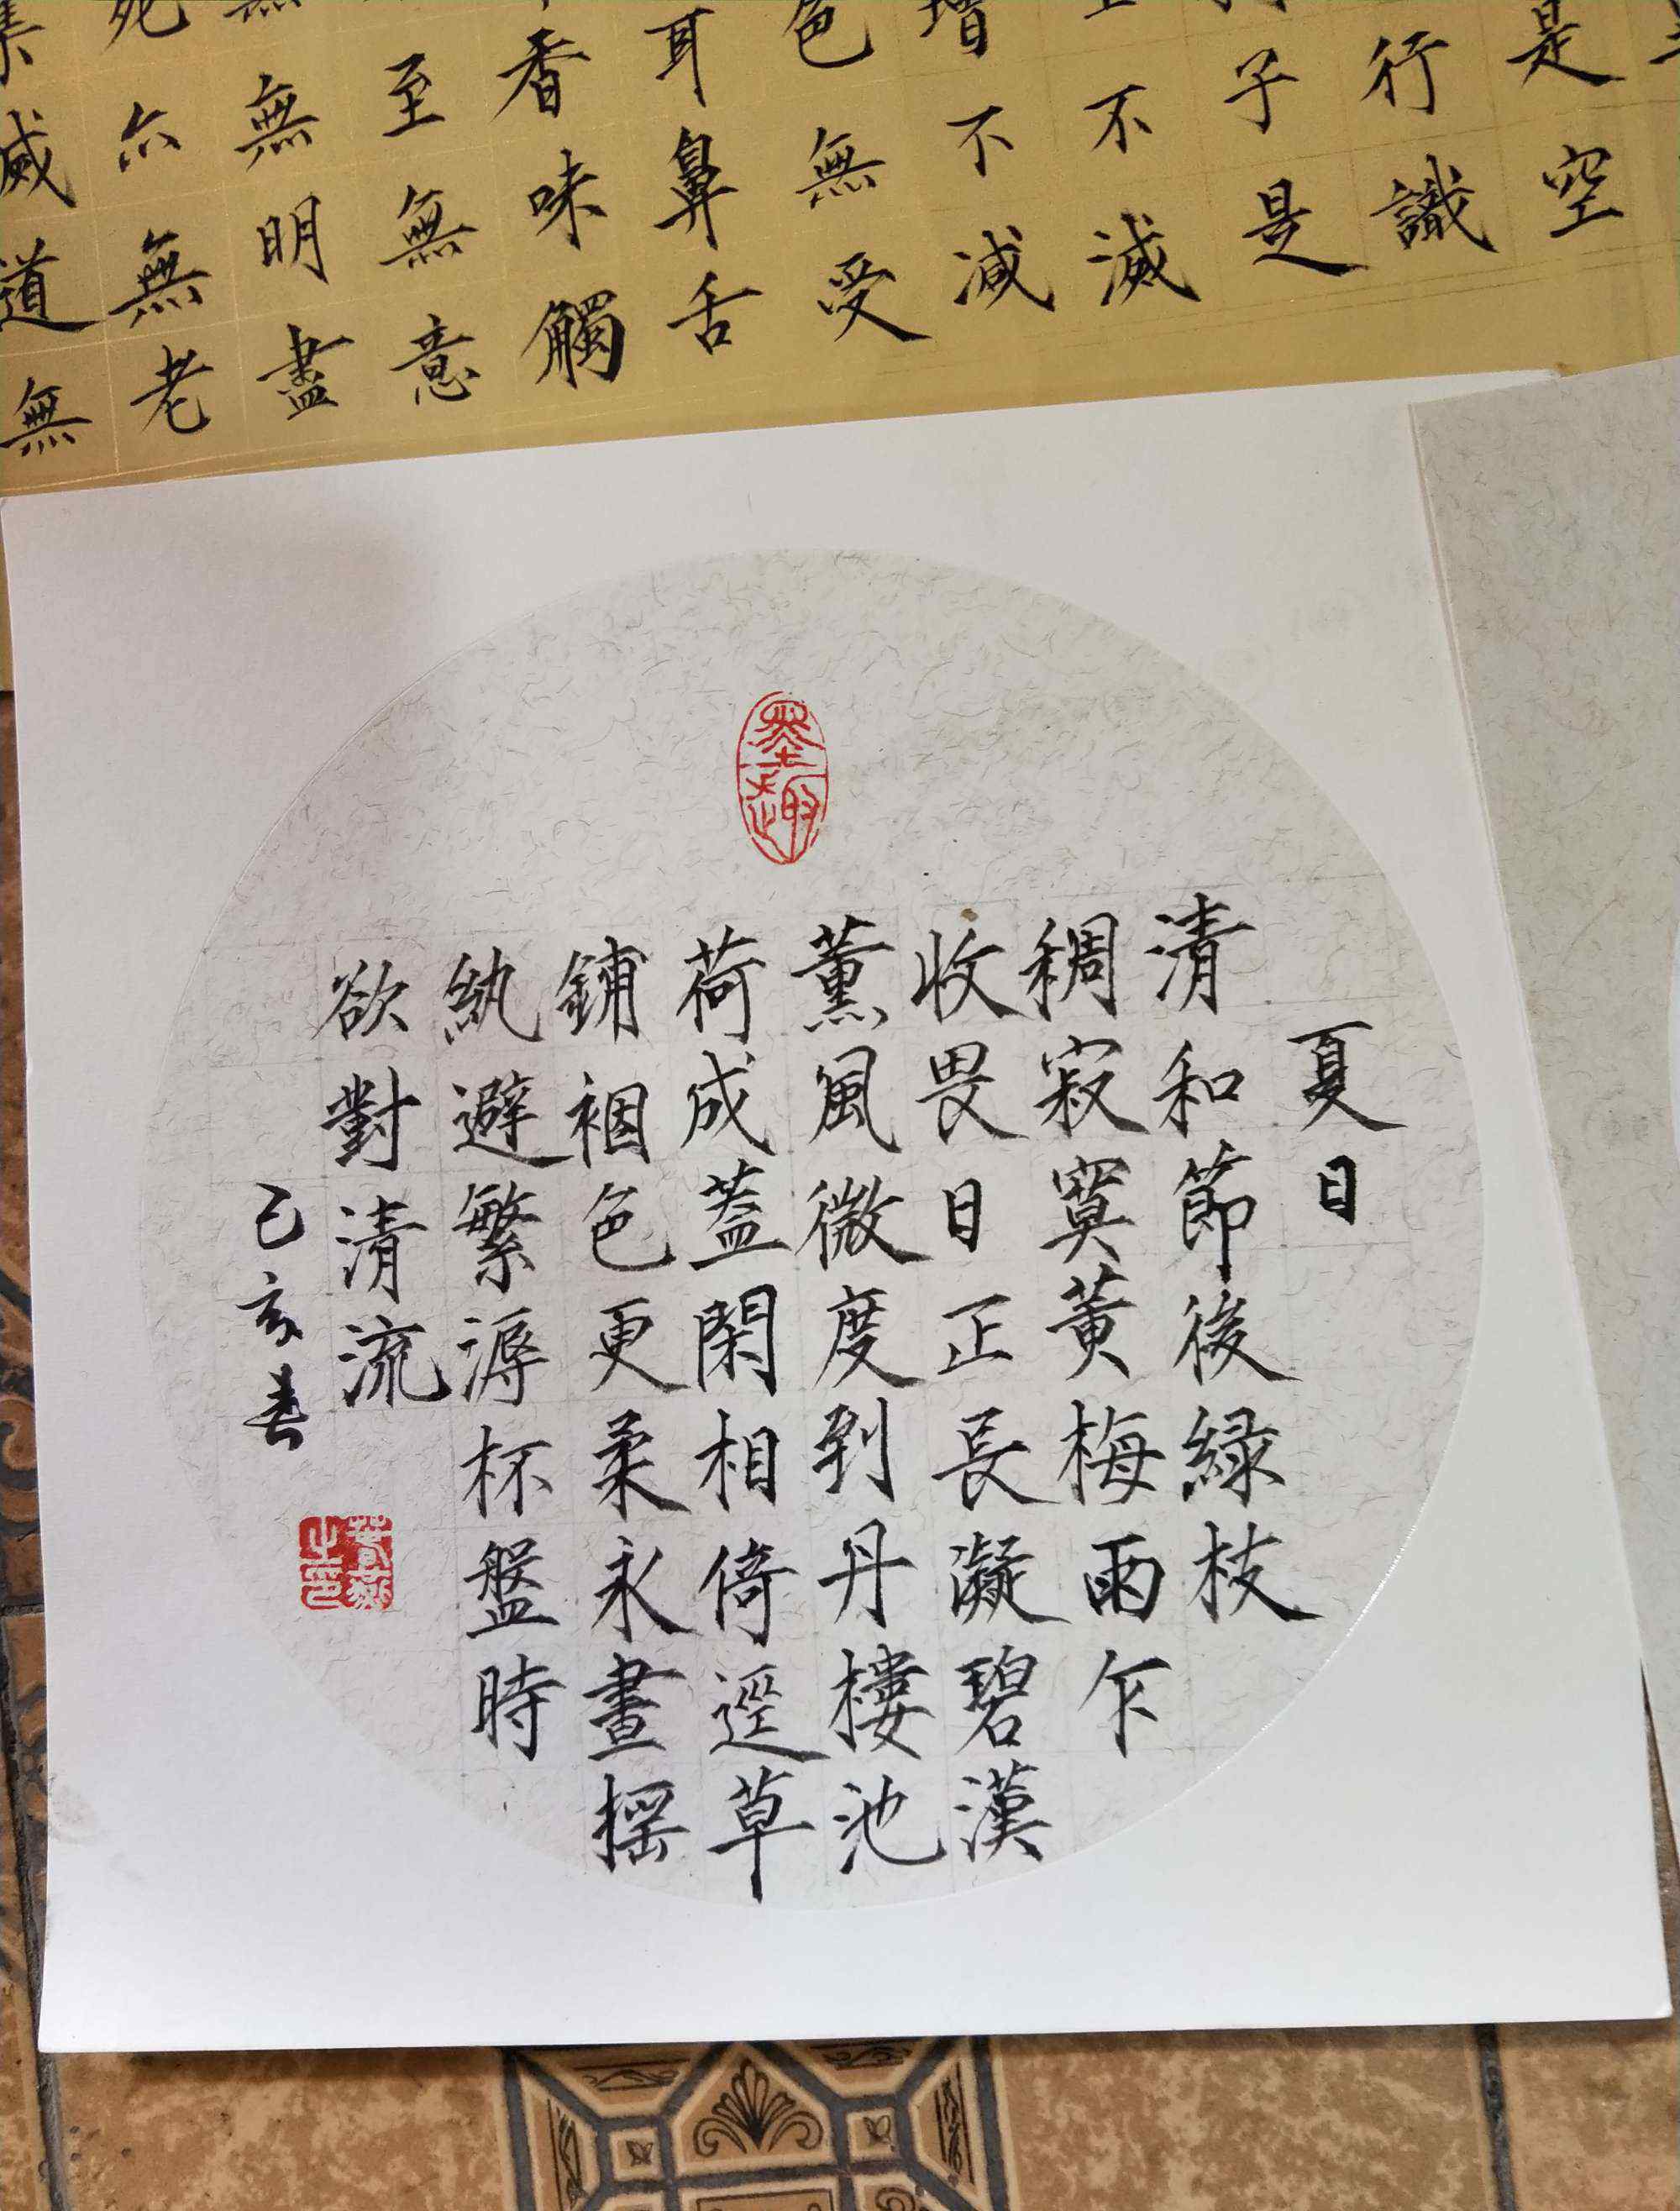 是空
行識
子是
不滅
增不減
色無受
耳鼻舌
香味觸
至無意
無無明盡
死亦無老
滅道無
墨趣
夏日
清和節後緑枝
稠寂寞黄梅雨乍
收畏日正長凝碧漢
薰風微度到丹樓池
荷成蓋閑相倚逕草
鋪裀色更柔永晝摇
紈避繁溽杯盤時
欲對清流
己亥春